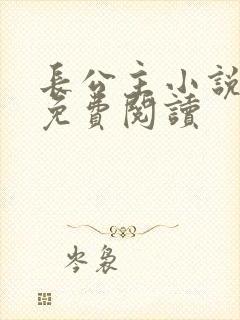 長公主小說
免費閱讀
岑裊